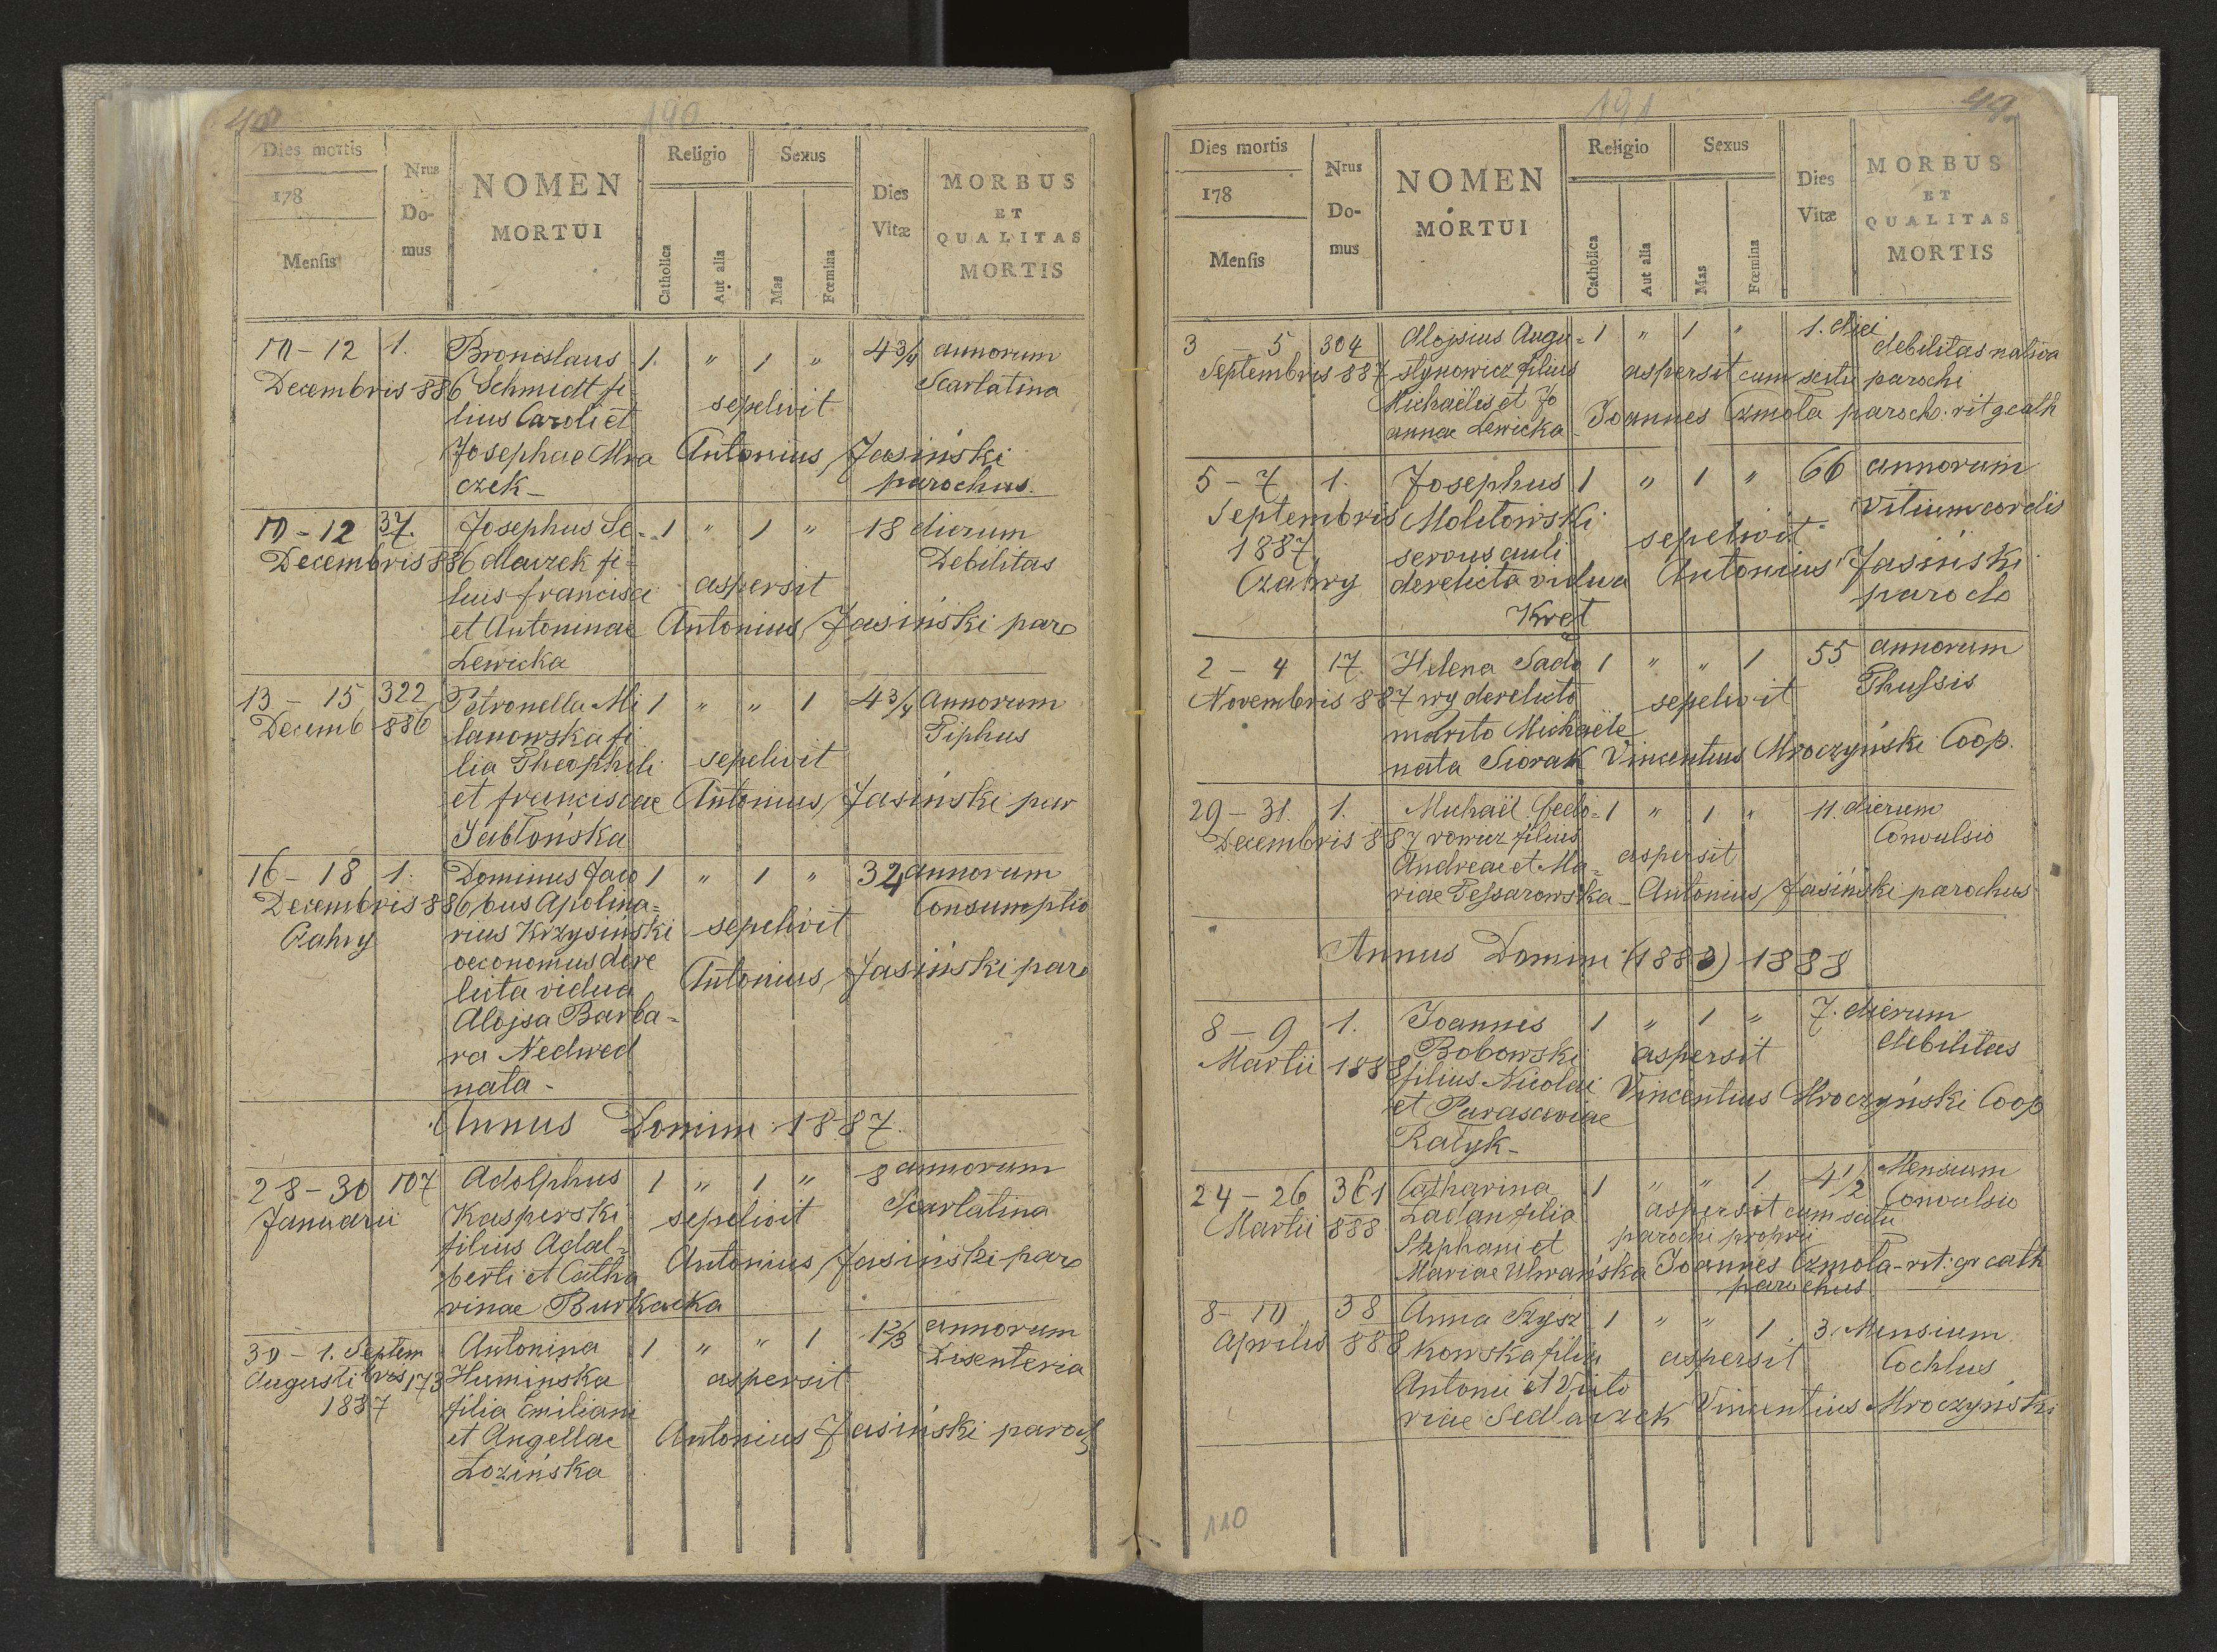 48
190
Dies mortis
178
Mensis
Nrus
Do-
mus
NOMEN
MORTUI
Religio
Catholica
Aut alia
Sexus
Mas
Fœmina
Dies
Vitæ
MORBUS
ET
QUALITAS
MORTIS
10 - 12 1. Bronislaus 1. " 1 " 4 3/4 annorum
Decembris 886 Schmidt fi- Scarlatina
lius Caroli et sepelivit
Josephae Mra Antonius Jasiński
czek - parochus.
10 - 12 37. Josephus Se- 1 " 1 " 18 dierum
Decembris 886 dlaczek fi- Debilitas
lius francisci aspersit
et Antoninae Antonius Jasiński paro
Lewicka
13 - 15 322 Petronella Mi 1 " " 1 4 3/4 Annorum
Decemb 886 lanowska fi Tiphus
lia Theophili sepelivit
et franciscae Antonius Jasiński par
Jabłońska
16 - 18 1. Dominus Jaco 1 " 1 " 34 annorum
Decembris 886 bus Apolina- Consumptio
Czahry rius Krzysiński sepelivit
oeconomus dere
licta vidua Antonius Jasiński paro
Alojsa Barba-
ra Nedwed
nata -
Annus Domini 1887.
28 - 30 107 Adolphus 1 " 1 " 8 annorum
Januarii Kasperski sepelivit Scarlatina
filius Adal-
berti et Catha Antonius Jasiński paro
rinae Burkacka
30 - 1. Septem Antonina 1 " " 1 1 2/3 annorum
Augusti bris 173 Huminska aspersit Disenteria
1887 filia Emiliani
et Angellae Antonius Jasiński paroch
Łozińska
49
191
Dies mortis
178
Mensis
Nrus
Do-
mus
NOMEN
MORTUI
Religio
Catholica
Aut alia
Sexus
Mas
Fœmina
Dies
Vitæ
MORBUS
ET
QUALITAS
MORTIS
3 - 5 304 Alojsius Augu- 1 " 1 " 1. diei
Septembris 887 stynowicz filius aspersit cum scitu parochi debilitas nativa
Michaelis et Jo
annae Lewicka - Joannes Czmola paroch. rit g cath
5 - 7 1. Josephus 1 " 1 " 66 annorum
Septembris Molitowski Vitium cordis
1887 servus auli sepelivit
Czahry derelicta vidua Antonius Jasiński
Kręt paroch
2 - 4 17. Helena Sado 1 " " 1 55 annorum
Novembris 887 wy derelicto sepelivit Thussis
marito Michaële
nata Siorak Vincentius Mroczyński Coop.
29 - 31. 1. Michaël Fedo- 1 " 1 " 11. dierum
Decembris 887 rowicz filius Convulsio
Andreae et Ma- aspersit
riae Tessarowska - Antonius Jasiński parochus
Annus Domini (1883) 1888
8 - 9 1. Joannes 1 " 1 " 7. dierum
Martii 1888 Bobowski aspersit debilitas
filius Nicolai
et Parasceviae Vincentius Mroczyński Coop
Ratyk -
24 - 26 361 Catharina 1 " " 1 4 1/2 Mensium
Martii 888 Ladan filia aspersit cum scitu Convulsio
Stephani et parochi proprii
Mariae Uhrańska Joannes Czmola - rit. gr cath
parochus
8 - 10 38 Anna Szysz 1 " " 1. 3. Mensium
Aprilis 888 kowska filia aspersit Cochlus
Antonii et Victo
riae Sedlaczek Vincentius Mroczyński
110